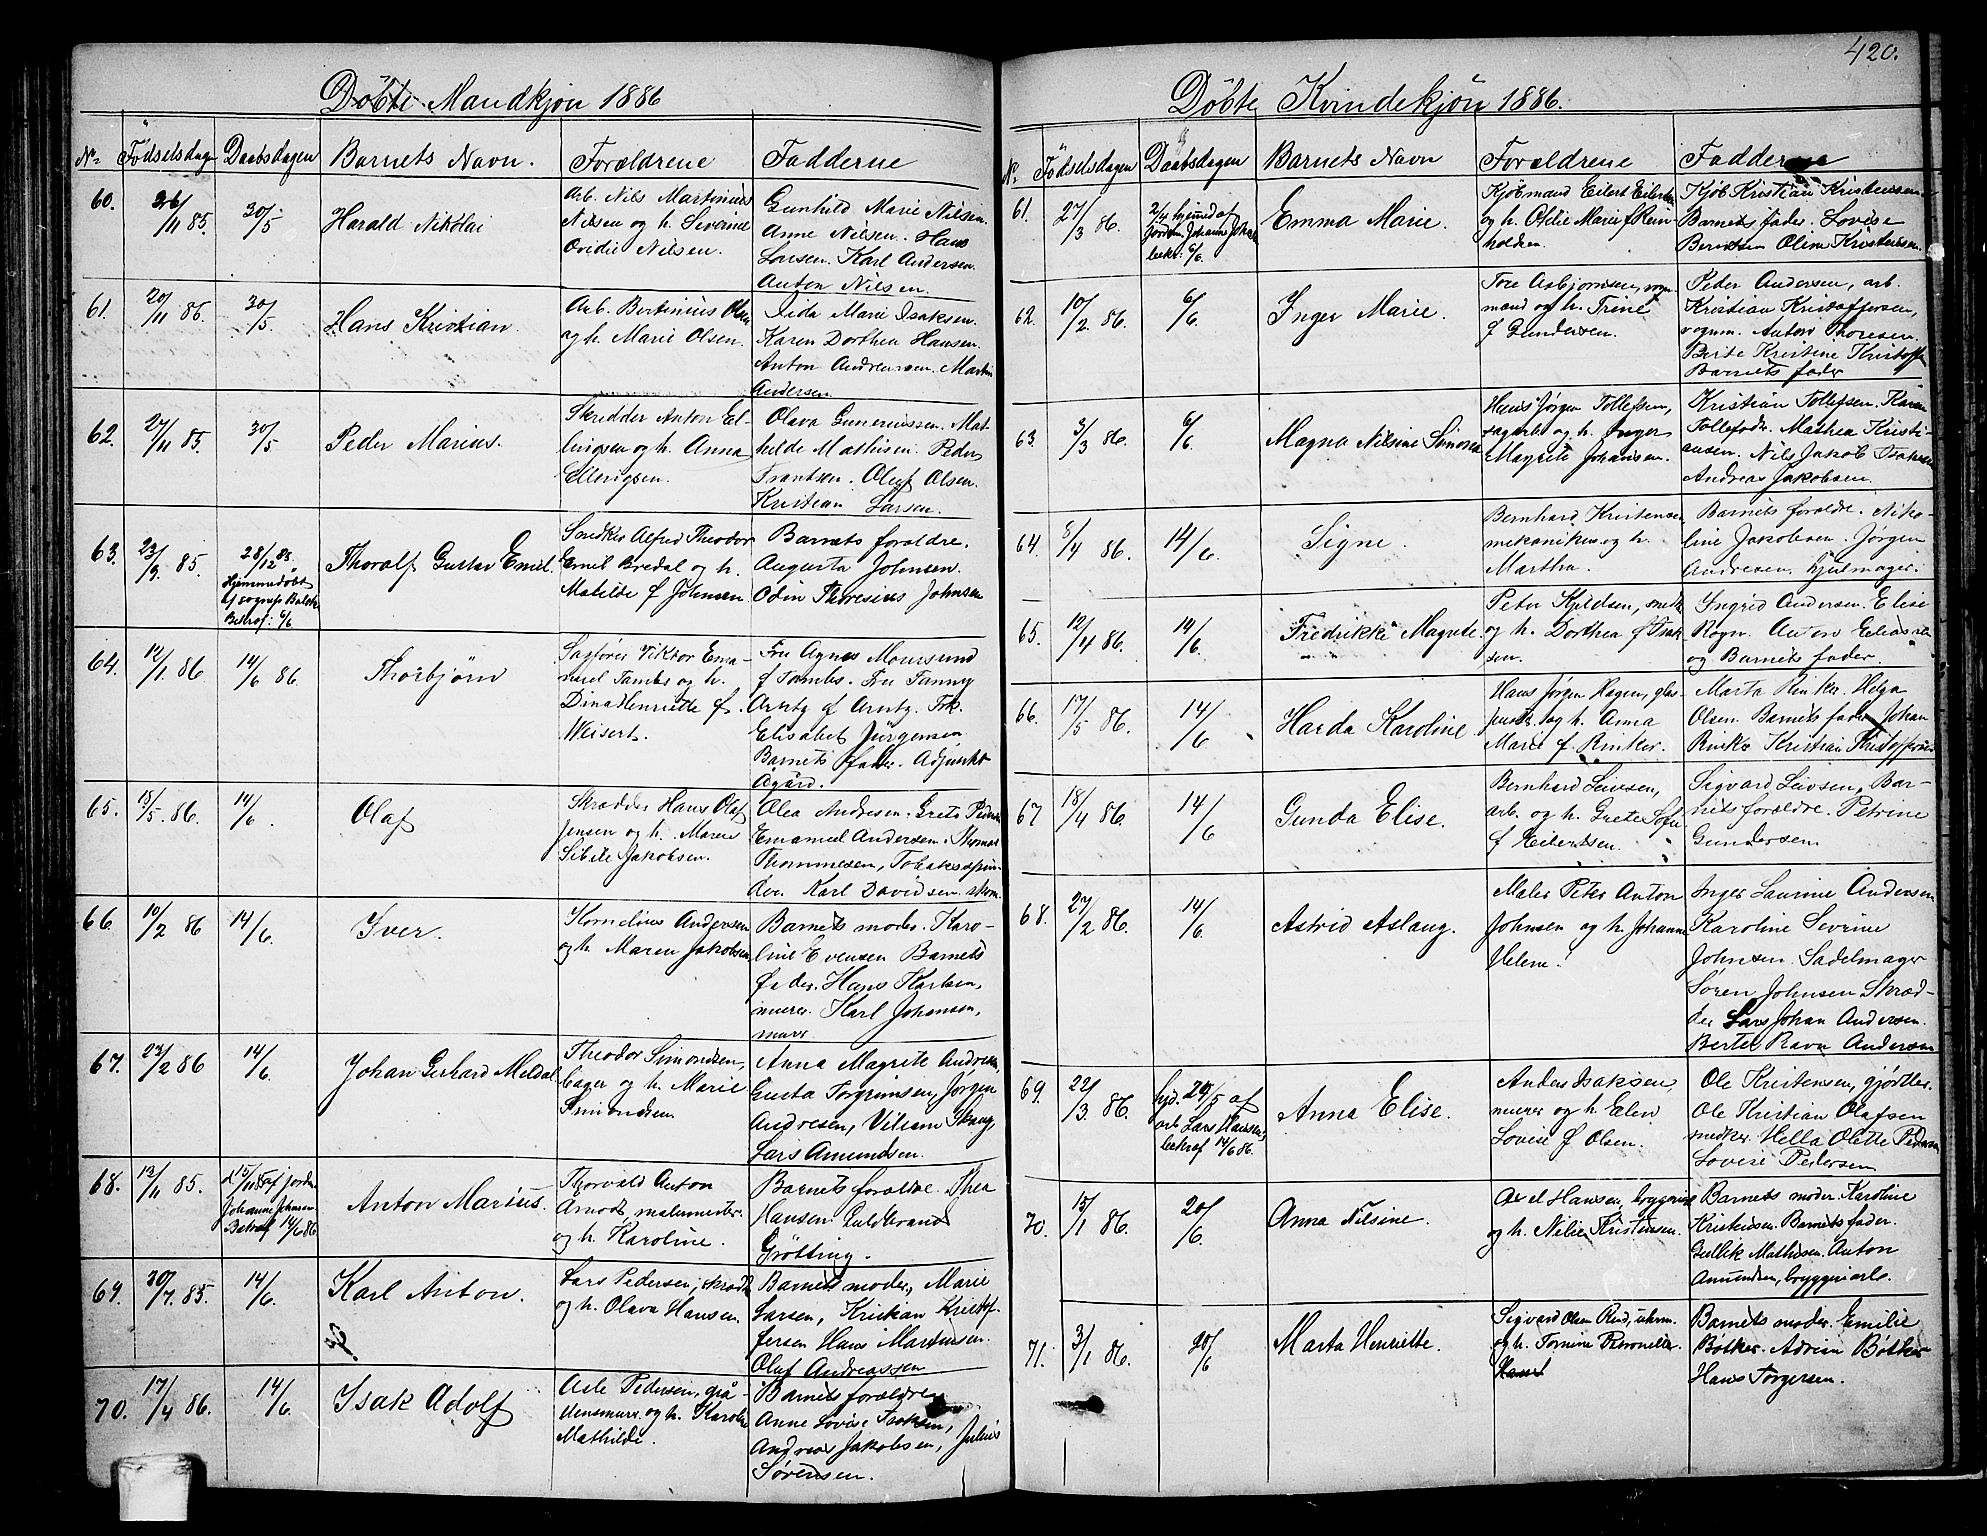 420.
Döbte Mandkjön 1886
No Födselsdag Daabsdagen Barnets Navn. Forældrene Fadderne
60. 26/11 85. 30/5 Harald Nikolai
Arb. Nils Martinius
Nilsen og h. Severine
Ovidie Nilsen.
Gunhild Marie Nilsen
Anne Nilsen. Hans
Larsen. Karl Andersen.
Anton Nilsen.
61. 20/11 86. 30/5 Hans Kristian.
Arb. Bertinius Olsen
og h. Marie Olsen.
Lida Marie Isaksen.
Karen Dorthea Hansen.
Anton Andreassen. Martin
Andersen.
62. 27/11 85. 30/5 Peder Marius.
Skredder Anton El-
lingsen og h. Anna
Ellingsen.
Olava Guneriussen. Mat-
hilde Mathisen. Peder
Frantsen. Oluf Olsen.
Kristian Larsen.
63. 23/9 85. 28/12 85.
Hjemmedöbt
Bekræf: 6/6
Thoralf Gustav Emil.
Snedker Alfred Theodor
Emil Bredal og h.
Matilde f Johnsen
Barnets forældre.
Augusta Johnsen.
Odin Thoresius Johnsen
64. 12/1 86 14/6 86. Thorbjörn
Sagförer Viktor Ema-
nuel Tambs og h.
Dina Henriette f.
Weisert.
Fru Agnes Moursund
f Tambs. Fru Fanny
Arntz af Arntz. Frk.
Elisabet Jürgensen
Barnets fader. Adjunkt
Agård.
65. 15/5. 86. 14/6. Olaf
Skrædder Hans Olaf
Jensen og h. Maren
Sibile Jakobsen.
Olea Andresen. Grete Peder
Emanuel Andersen. Thomas
Thommesen, Tobaksspin-
der. Karl Davidsen. skom.
66. 10/2 86 14/6. Iver.
Kornelius Andersen
og h. Maren Jakobsen
Barnets moder. Karo-
line Evensen Barnets
Fader. Hans Karlsen,
murer. Karl Johansen,
murer
67. 23/2 86 14/6. Johan Gerhard Meldal
Theodor Simondsen,
bager og h. Marie
Simondsen
Anna Magrete Andresen,
Gusta Torgrimsen, Jörgen
Andresen, Viliam Skaug,
Lars Amundsen.
68. 13/11 85. 15/11 85 af jordm
Johanne Johnsen
Bekræf 14/6 86.
Anton Marius.
Thorvald Anton
Arnods malermester.
og h. Karoline.
Barnets forældre. Thea
Hansen Guldbrand
Grötting.
69. 20/7. 85. 14/6. Karl Anton.
Lars Pedersen, skrædd
og h. Olava Hansen.
Barnets moder, Marie
Larsen, Kristian Kristof-
fersen Hans Martinsen.
Olaf Andreassen
70. 17/4 86. 14/6. Isak Adolf
Asle Pedersen, grå-
stensmurer og h. Karoline
Mathilde.
Barnets forældre
Anne Lovise Isaksen,
Andreas Jakobsen, Julius
Sörensen.
Döbte Kvindekjön 1886.
No. Födselsdagen Daabsdagen Barnets Navn Forældrene Fadderne
61. 27/3 86. 2/4 hjemmed af
Jordm. Johanne
bekr: 6/6.
Emma Marie.
Kjöbmand Eilert Eilertsen
og h. Otilie Marie f Rein-
holdsen.
Kjöb Kristian Kristensen.
Barnets fader. Lovise
Berntsen Oline Kristensen.
62. 10/2 86. 6/6. Inger Marie.
Tore Asbjörnsen, vogn-
mand og h. Trine
f Gundersen.
Peder Andersen, arb.
Kristian Kristoffersen,
vognm. Anton Thoresen.
Berte Kristine Kristoff
Barnets fader
63. 3/3 86. 6/6. Magna Nilsine Simonsen
Hans Jörgen Tollefsen,
sagarb og h. Inger
Magrete Johansen.
Kristian Tollefsen. Karen
Tollefsdr. Mathea Kristi-
ansen. Nils Jakob Isaksen
Andreas Jakobsen.
64. 8/4 86. 14/6. Signe.
Bernhard Kristensen
mekaniker og h.
Martha.
Barnets forældre. Niko-
line Jakobsen. Jörgen
Andresen. Hjulmager.
65. 12/4 86. 14/6. Fredrikke Magrete.
Peter Kjeldsen, smed
og h. Dorthea f Isak-
sen.
Ingrid Andersen. Elise
Rogn. Anton Eliassen
og Barnets fader.
66. 17/5 86. 14/6. Harda Karoline
Hans Jörgen Hagen, glas-
og h. Anna
Marie f Rinker.
Marta Rinker. Helga
Olsen. Barnets fader Johan
Rinker Kristian Kristoffersen
67 18/4 86. 14/6. Gunda Elise.
Bernhard Leivsen,
arb. og h. Grete Sofie
f Eilertsen.
Sigvard Leivsen, Bar-
nets forældre. Petrine
Gundersen
68. 27/2 86. 14/6. Astrid Aslaug.
Maler Peter Anton
Johnsen og h. Johanne
Helene.
Inger Laurine Andersen
Karoline Sevrine
Johnsen. Sadelmager
Sören Johnsen Skræd-
der Lars Johan Andersen.
Berte Ravn Andersen
69. 22/3 86. hjd. 24/5 af
arb Lars Hansen,
bekræf 14/6 86.
Anna Elise.
Anders Isaksen
murer og h Elen
Lovise f Olsen.
Ole Kristensen, gjørtler.
Ole Kristian Olafsen
snedker. Hella Olette Pedersen
Lovise Pedersen
70. 15/1 86. 20/6. Anna Nilsine.
Axel Hansen, bryggeriarb
og h. Nilie Kristensen.
Barnets moder. Karoline
Kristensen. Barnets fader.
Gullik Mathisen. Anton
Amundsen, bryggeriarb.
71. 3/1 86. 20/6 Marta Henriette.
Sigvard Olsen Rud, uhrm.
og h. Tomine Petronelle
Barnets moder. Emilie
Bötker. Adrian Bötker
Hans Torgersen.